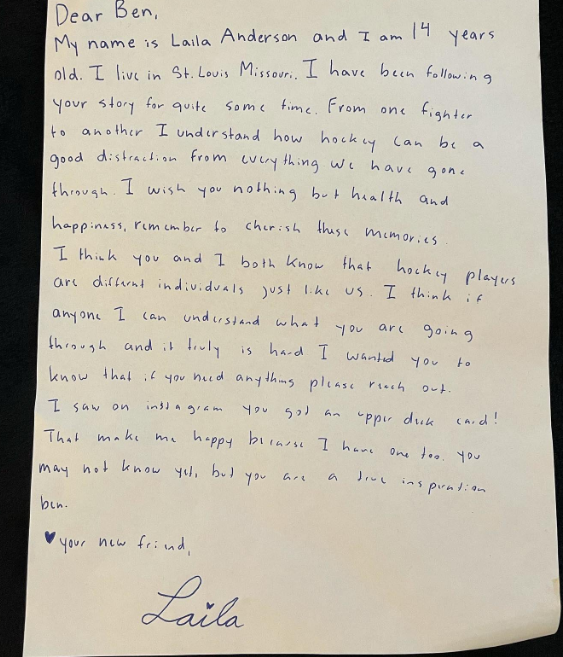 Dear Ben,
My name is Laila Anderson and I am 14 years
old. I live in St. Louis Missouri. I have been following
your story for quite some time. From one fighter
to another I understand how hockey can be a
good distraction from everything we have gone
through. I wish you nothing but health and
happiness, remember to cherish these memories.
I think you and I both know that hockey players
are different individuals just like us. I think if
anyone I can understand what you are going
through and it truly is hard I wanted you to
know that if you need anything please reach out.
I saw on instagram you got an upper deck card!
That make me happy because I have one too. you
may not know yet, but you are a true inspiration
ben.
♥ your new friend,
Laila